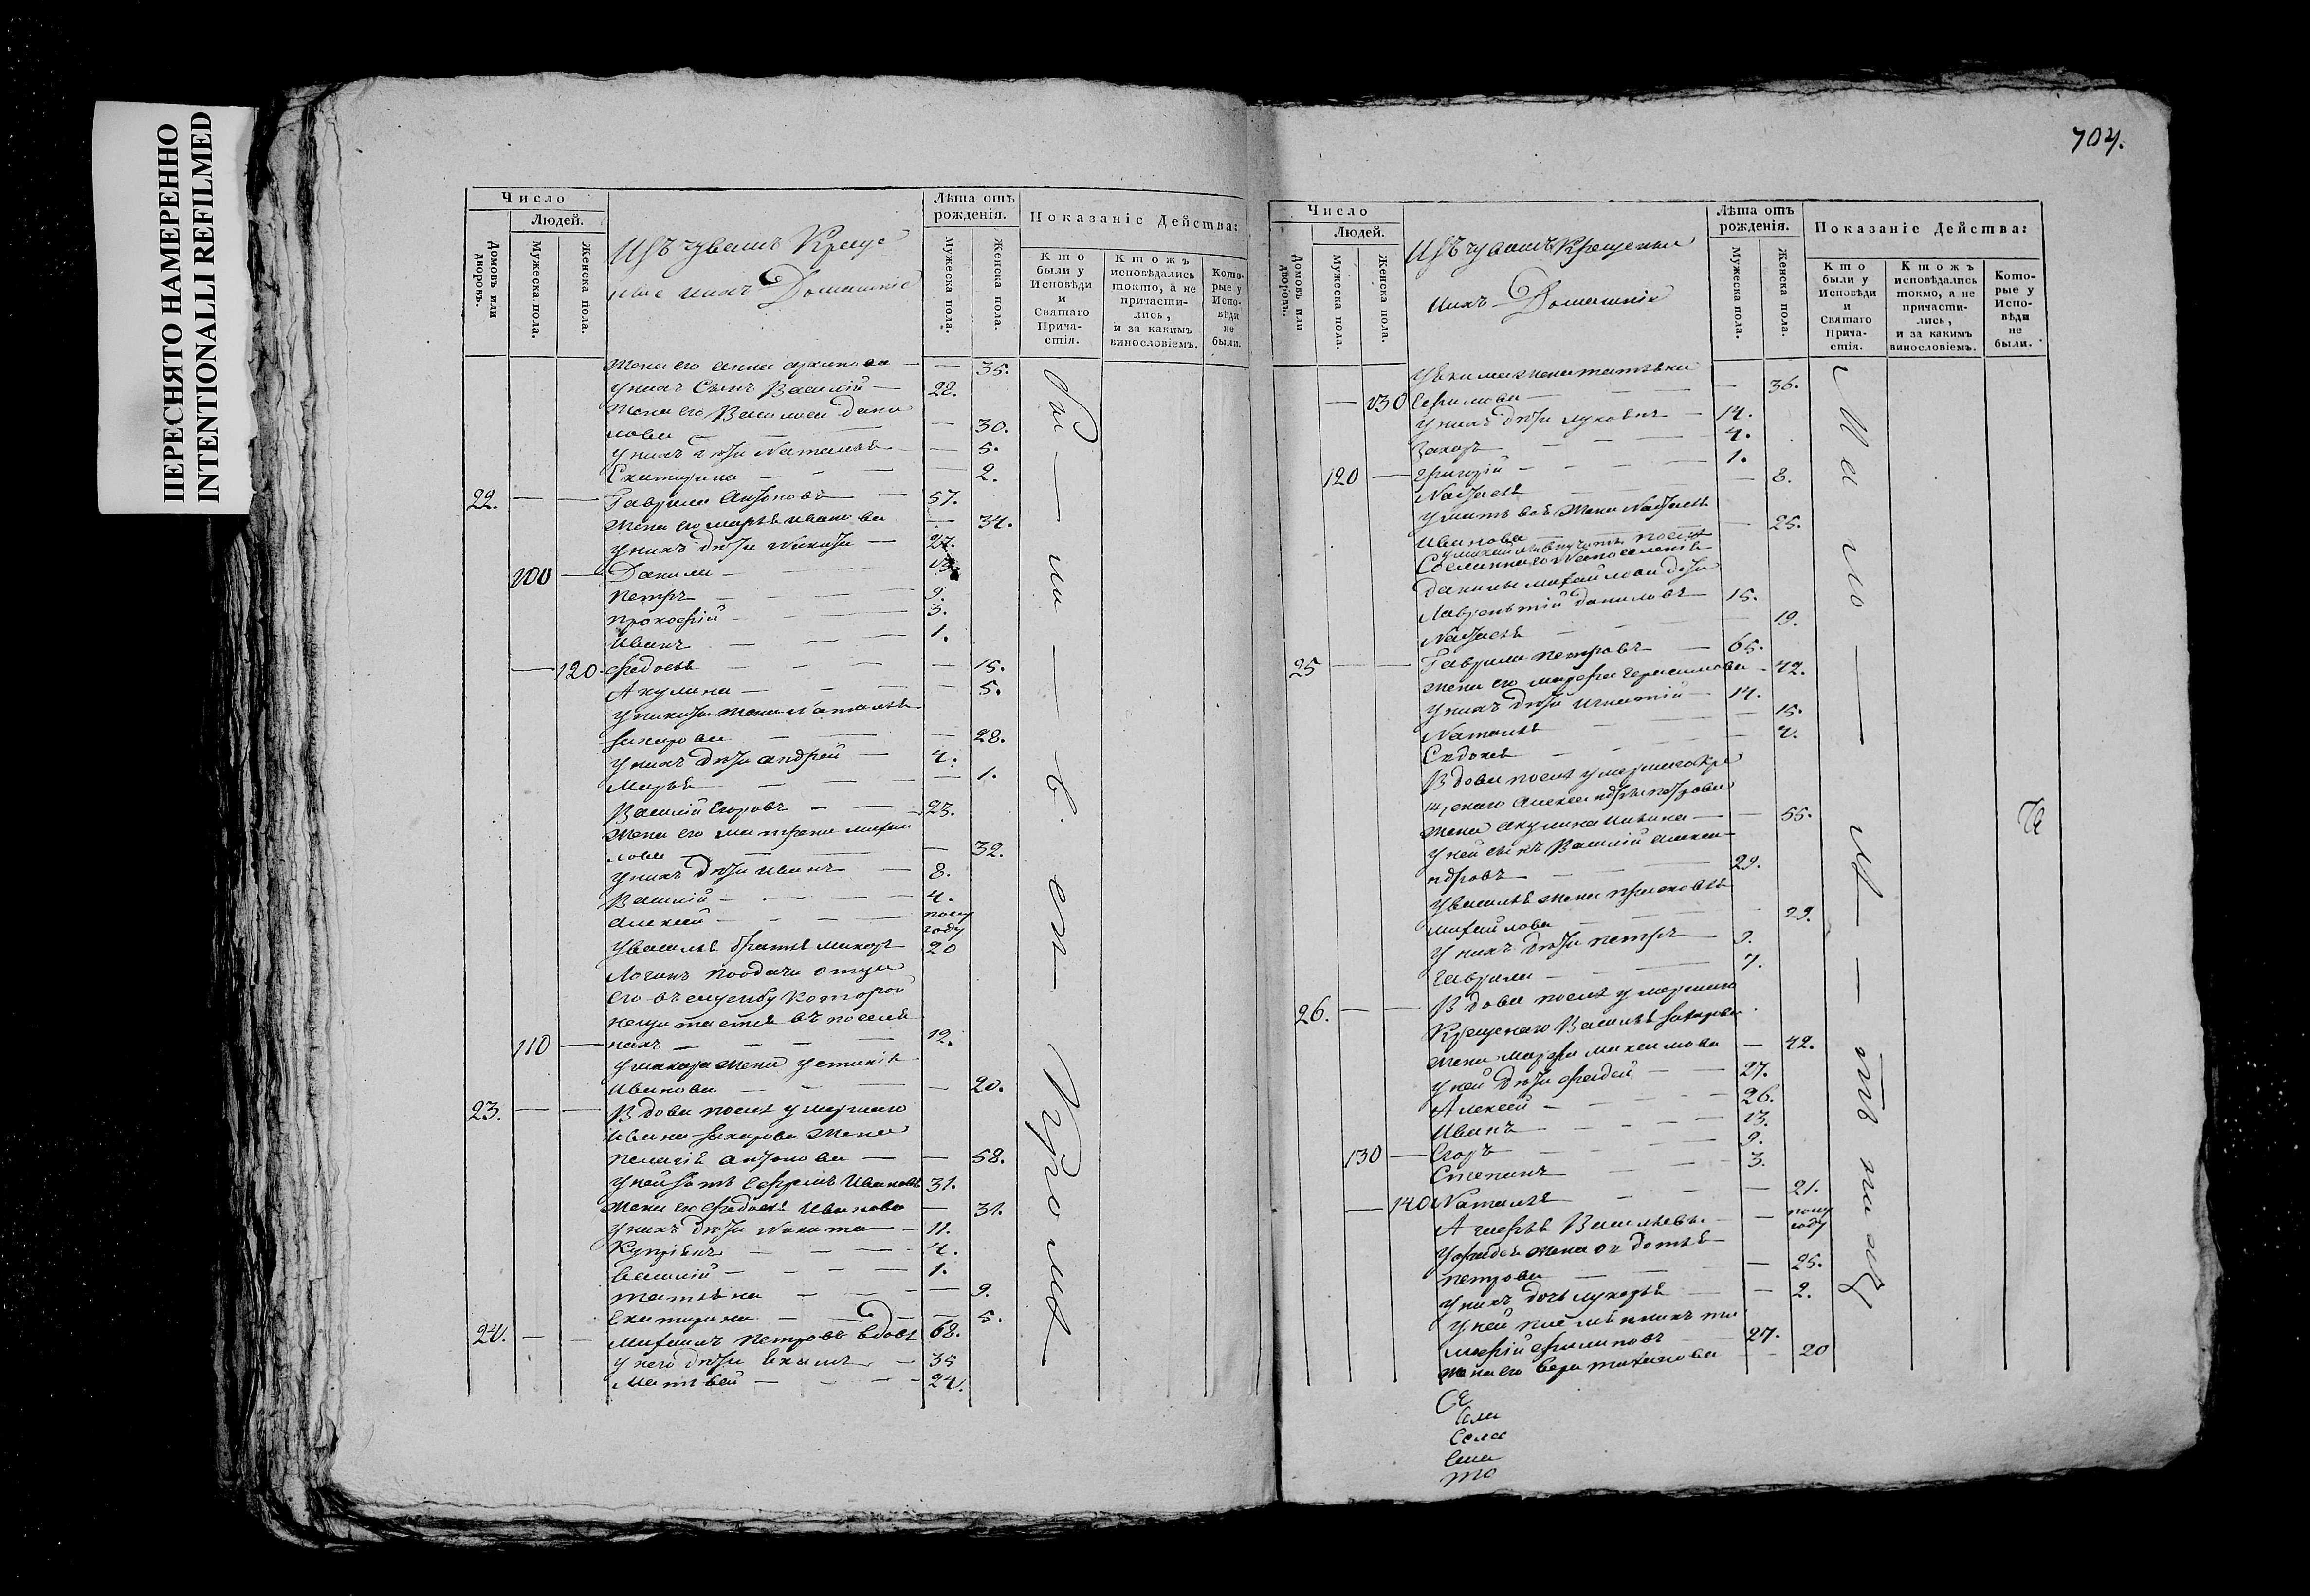 ПЕРЕСНЯТО НАМЕРЕННО
INTENTIONALLI REFILMED
Число
Людей.
Домовъ или дворовъ.
Мужеска пола.
Женска пола.
Изъ чувашъ Креще
ные ихъ Домашніе
Лѣта отъ рожденія.
Мужеска пола.
Женска пола.
Показаніе Действа:
Кто были у Исповѣди и Святаго Причастія.
Ктожъ исповѣдались токмо, а не причастились, и за какимъ винословіемъ.
Которые у Исповѣди не были.
жена его анна архипова — — 35.
у нихъ Сынъ Василій — 22.
жена его Василиса дани
лова — — — 30.
у нихъ дѣти Наталья — — 5.
Екатерина — — — 2.
22. — — Гаврила Антоновъ — 57.
жена его марья иванова — 34.
у нихъ дѣти никита — 27.
100 — Данила — — 13.
петръ — — — 9.
прокофій — — — 3.
Иванъ — — — 1.
— 120. федосья — — — — 15.
Акулина — — — 5.
у никиты жена Наталья
захарова — — — 28.
у нихъ дѣти андрей — 4.
Марья — — — 1.
Василій Егоровъ — — 23.
жена его матрена михаи
лова — — — 32.
у нихъ дѣти иванъ — 8.
Василій — — — 4.
алексей — — — полу году
у василья братья макаръ 20
Логинъ
его въ службу которой
110 — — — — 12.
у макара жена устинія
Иванова — — — 20.
23. — — Вдова послѣ умершаго
ивана захарова жена
пелагія антонова — — 58.
у ней зять Ефремъ Ивановъ 31.
жена его федосья Иванова — 31.
у нихъ дѣти никита — 11.
Купріянъ — — — 4.
василій — — — 1.
татьяна — — — 9.
екатерина — — — 5.
24. — — михаилъ петровъ вдовъ 68.
у него дѣти екимъ — 35
Матвей — — — 24.
704.
Число
Людей.
Домовъ или дворовъ.
Мужеска пола.
Женска пола.
Изъ чувашъ Крещеныи
ихъ Домашніе
Лѣта отъ рожденія.
Мужеска пола.
Женска пола.
Показаніе Действа:
Кто были у Исповѣди и Святаго Причастія.
Ктожъ исповѣдались токмо, а не причастились, и за какимъ винословіемъ.
Которые у Исповѣди не были.
у екима жена татьяна
— 130 Ефимова — — — 36.
у нихъ дѣти — 14.
Захаръ — — — 4.
120 — григорій — — — 1.
Настасья — — — 8.
у матвея жена Настасья
Иванова — — — 25.
данилы михайлова дѣти
Лаврентій даниловъ — 15.
Настасья — — — 19.
25 — — Гаврила петровъ — 65.
жена его марфа герасимова — 42.
у нихъ дѣти игнатій — 14.
Наталья — — 15.
Евдокея — — — 4.
Вдова послѣ умершаго кре
щенаго александра петрова
жена акулина — — 55.
у ней сынъ Василій алекса
ндровъ — — — 29.
у василья жена прасковья
михаилова — — 29.
у нихъ дѣти петръ — 9.
гаврила — — — 7.
26. — — Вдова послѣ умершаго
Крещенаго Василья захарова
жена марфа максимова — 42.
у ней дѣти фадей — — 27.
Алексей — — — 26.
Иванъ — — — 13.
130 — Егоръ — — — 9.
Степанъ — — 3.
— 140 Наталья — — 21.
Васильевъ. — — полу году
у фадея жена
петрова — — — 25.
у нихъ дочь лукерья — — 2.
у ней племянникъ ти
мофій филиповъ — 27.
жена его Вера — — 20